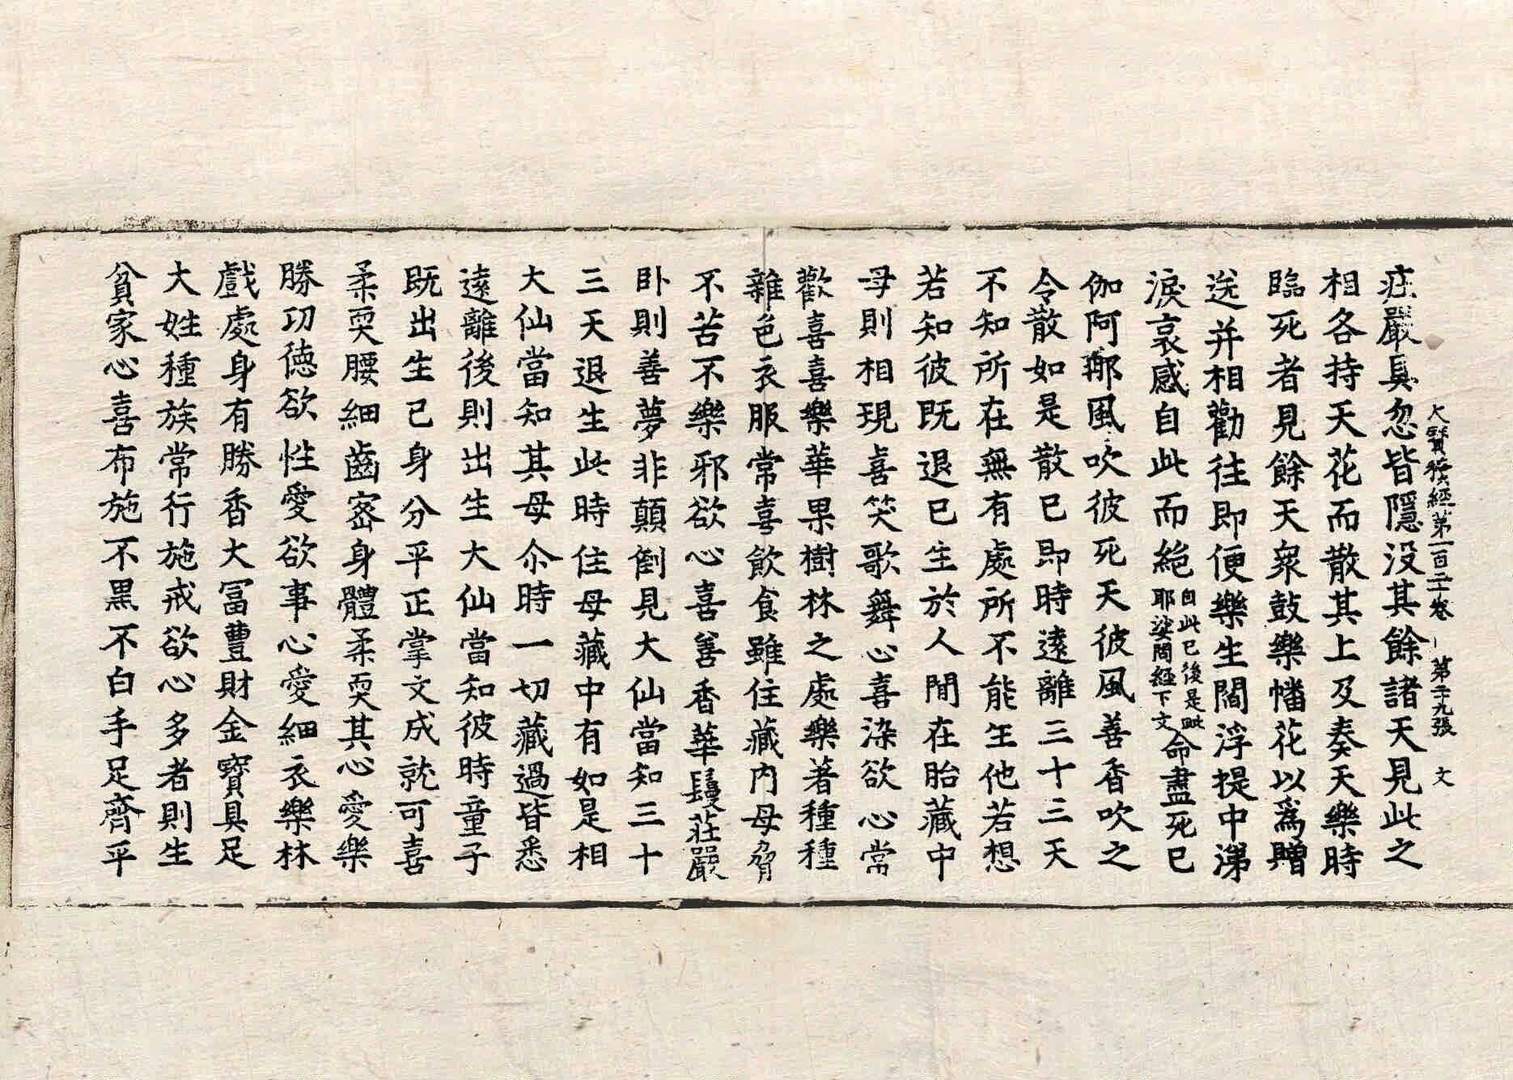 大寶積經第一百二十卷 第二十九張 文
莊嚴具忽皆隱没其餘諸天見此之
相各持天花而散其上及奏天樂時
臨死者見餘天衆鼓樂幡花以爲贈
送并相勸往即便樂生閻浮提中涕
淚哀感自此而絶自此已後是毗耶娑問經下文命盡死已
伽阿那風吹彼死天彼風善香吹之
令散如是散已即時遠離三十三天
不知所在無有處所不能生他若想
若知彼既退已生於人間在胎藏中
母則相現喜笑歌舞心喜染欲心常
歡喜喜樂華果樹林之處樂著種種
雜色衣服常喜飲食雖住藏内母脅
不苦不樂邪欲心喜善香華鬘莊嚴
卧則善夢非顛倒見大仙當知三十
三天退生此時住母藏中有如是相
大仙當知其母尒時一切藏過皆悉
遠離後則出生大仙當知彼時童子
既出生已身分平正掌文成就可喜
柔耎腰細齒密身體柔耎其心愛樂
勝功德欲性愛欲事心愛細衣樂林
戲處身有勝香大冨豐財金寳具足
大姓種族常行施戒欲心多者則生
貧家心喜布施不黒不白手足齊平